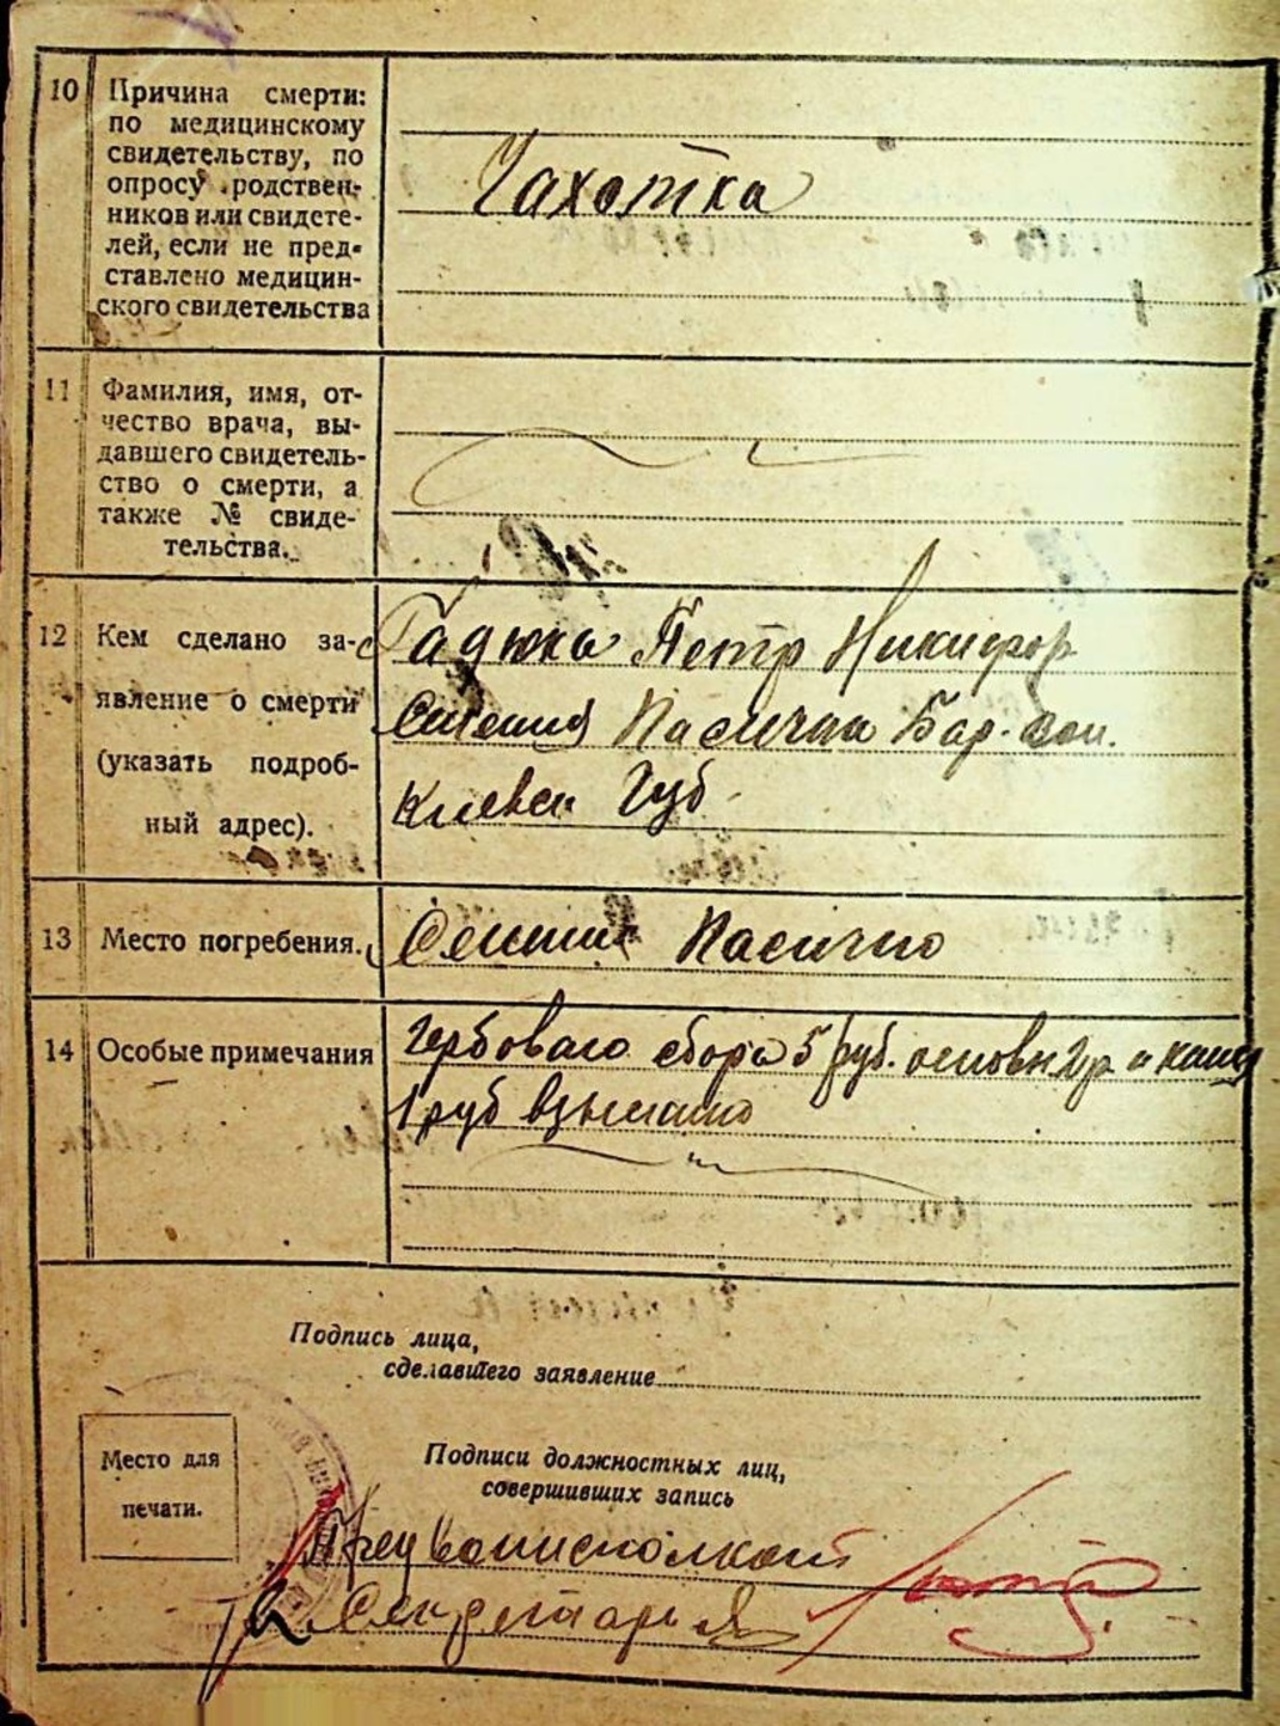 10
Причина смерти:
по медицинскому
свидетельству, по
опросу родствен-
ников или свидете-
лей, если не пред-
ставлено медицин-
ского свидетельства
Чахотка
11
Фамилия, имя, от-
чество врача, вы-
давшего свидетель-
ство о смерти, а
также № свиде-
тельства.
12
Кем сделано за-
явление о смерти
(указать подроб-
ный адрес).
Гадюка Петр Никифор
Пасична Бар. вол.
Киевск Губ.
13
Место погребения.
Пасично
14
Особые примечания
Гербоваго сбора 5 руб. основн гр и канц
1 руб взыскано
Подпись лица,
сделавшего заявление
Место для
печати.
Подписи должностных лиц,
совершивших запись
Пред Волисполкома
Секретарь